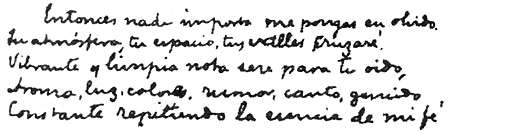 Entonces nada importa me pongas en olvido.
Tu atmósfera, tu espacio, tus celles cruzaré.
Vibrante y limpia nota seré para tu oido,
Aroma, luz, colores, rumor, canto, gemido
Constante repitiendo la esencia de mi fé,